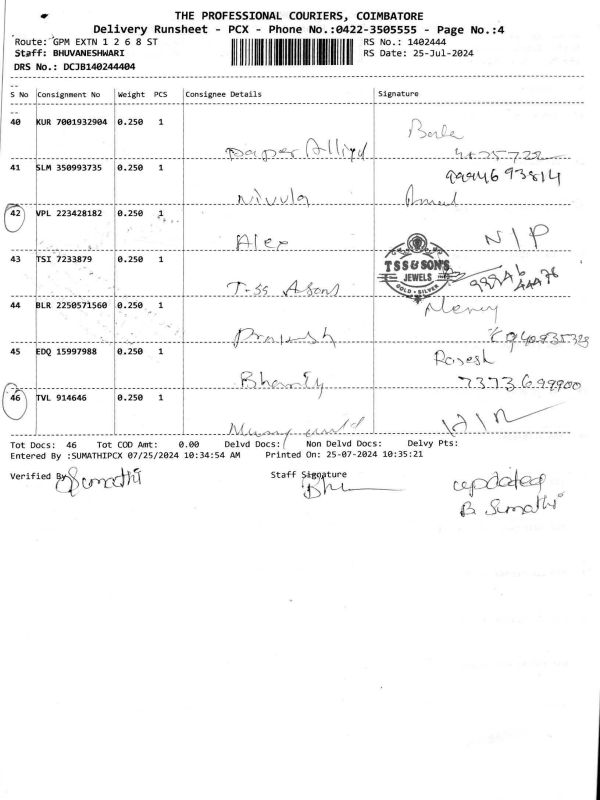 THE PROFESSIONAL COURIERS, COIMBATORE
Delivery Runsheet - PCX - Phone No.:0422-3505555 - Page No.:4
Route: GPM EXTN 1 2 6 8 ST
RS No.: 1402444
Staff: BHUVANESHWARI
RS Date: 25-Jul-2024
DRS No.: DCJB140244404
S No Consignment No Weight PCS Consignee Details Signature
40 KUR 7001932904 0.250 1
41 SLM 350993735 0.250 1
Nivula
42 VPL 223428182 0.250 1
Alex
43 TSI 7233879 0.250 1
TSS & SON'S
JEWELS
GOLD - SILVER
T-SS
44 BLR 2250571560 0.250 1
45 EDQ 15997988 0.250 1
Rajesh
46 TVL 914646 0.250 1
Tot Docs: 46 Tot COD Amt: 0.00 Delvd Docs: Non Delvd Docs: Delvy Pts:
Entered By :SUMATHIPCX 07/25/2024 10:34:54 AM Printed On: 25-07-2024 10:35:21
Verified By Sumathi
Staff Signature
updated
B. Sumathi